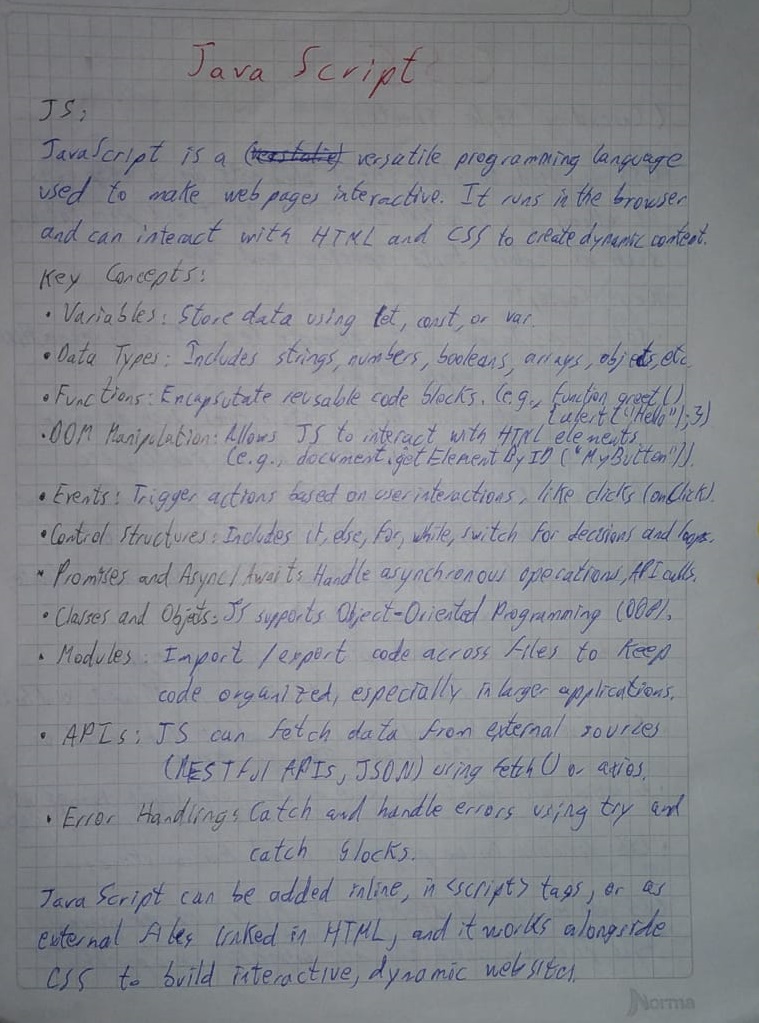 Java Script
JS:
JavaScript is a (verstalie) versatile programming language
used to make web pages interactive. It runs in the browser
and can interact with HTML and CSS to create dynamic content.
Key Concepts:
• Variables: Store data using let, const, or var.
• Data Types: Includes strings, numbers, booleans, arrays, objects, etc.
• Functions: Encapsulate reusable code blocks. (e.g., function greet()
{alert("Hello");})
• DOM Manipulation: Allows JS to interact with HTML elements
(e.g., document.getElementByID ("MyButton")).
• Events: Trigger actions based on user interactions, like clicks (onClick).
• Control Structures: Includes if, else, for, while, switch for decisions and loops.
• Promises and Async/Await: Handle asynchronous operations, API calls.
• Classes and Objects: JS supports Object-Oriented Programming (OOP).
• Modules: Import /export code across files to keep
code organized, especially in larger applications.
• APIs: JS can fetch data from external sources
(RESTful APIs, JSON) using fetch() or axios.
• Error Handling: Catch and handle errors using try and
catch blocks.
Java Script can be added inline, in <script> tags, or as
external files linked in HTML, and it works alongside
CSS to build interactive, dynamic websites.
Norma